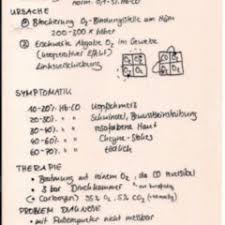 norm. 0,1-3% Hb-CO
URSACHE
① Blockierung O₂-Bindungsstelle am Häm
200-300 x höher
② Erschwerte Abgabe O₂ im Gewebe
(kooperativer Effekt)
Linksverschiebung
O₂ O₂
O₂ O₂
SYMPTOMATIK
10-20% Hb-CO Kopfschmerz
20-30% " Schwindel, Bewusstseinstrübung
30-40% " rosafarbene Haut
40-60% " Cheyne-Stokes
60-70% " tödlich
THERAPIE
• Beatmung mit reinem O₂, da CO
• 3 bar Druckkammer
(• Carbogen) 95% O₂, 5% CO₂
PROBLEM DIAGNOSE
• mit Pulsoximeter nicht messbar